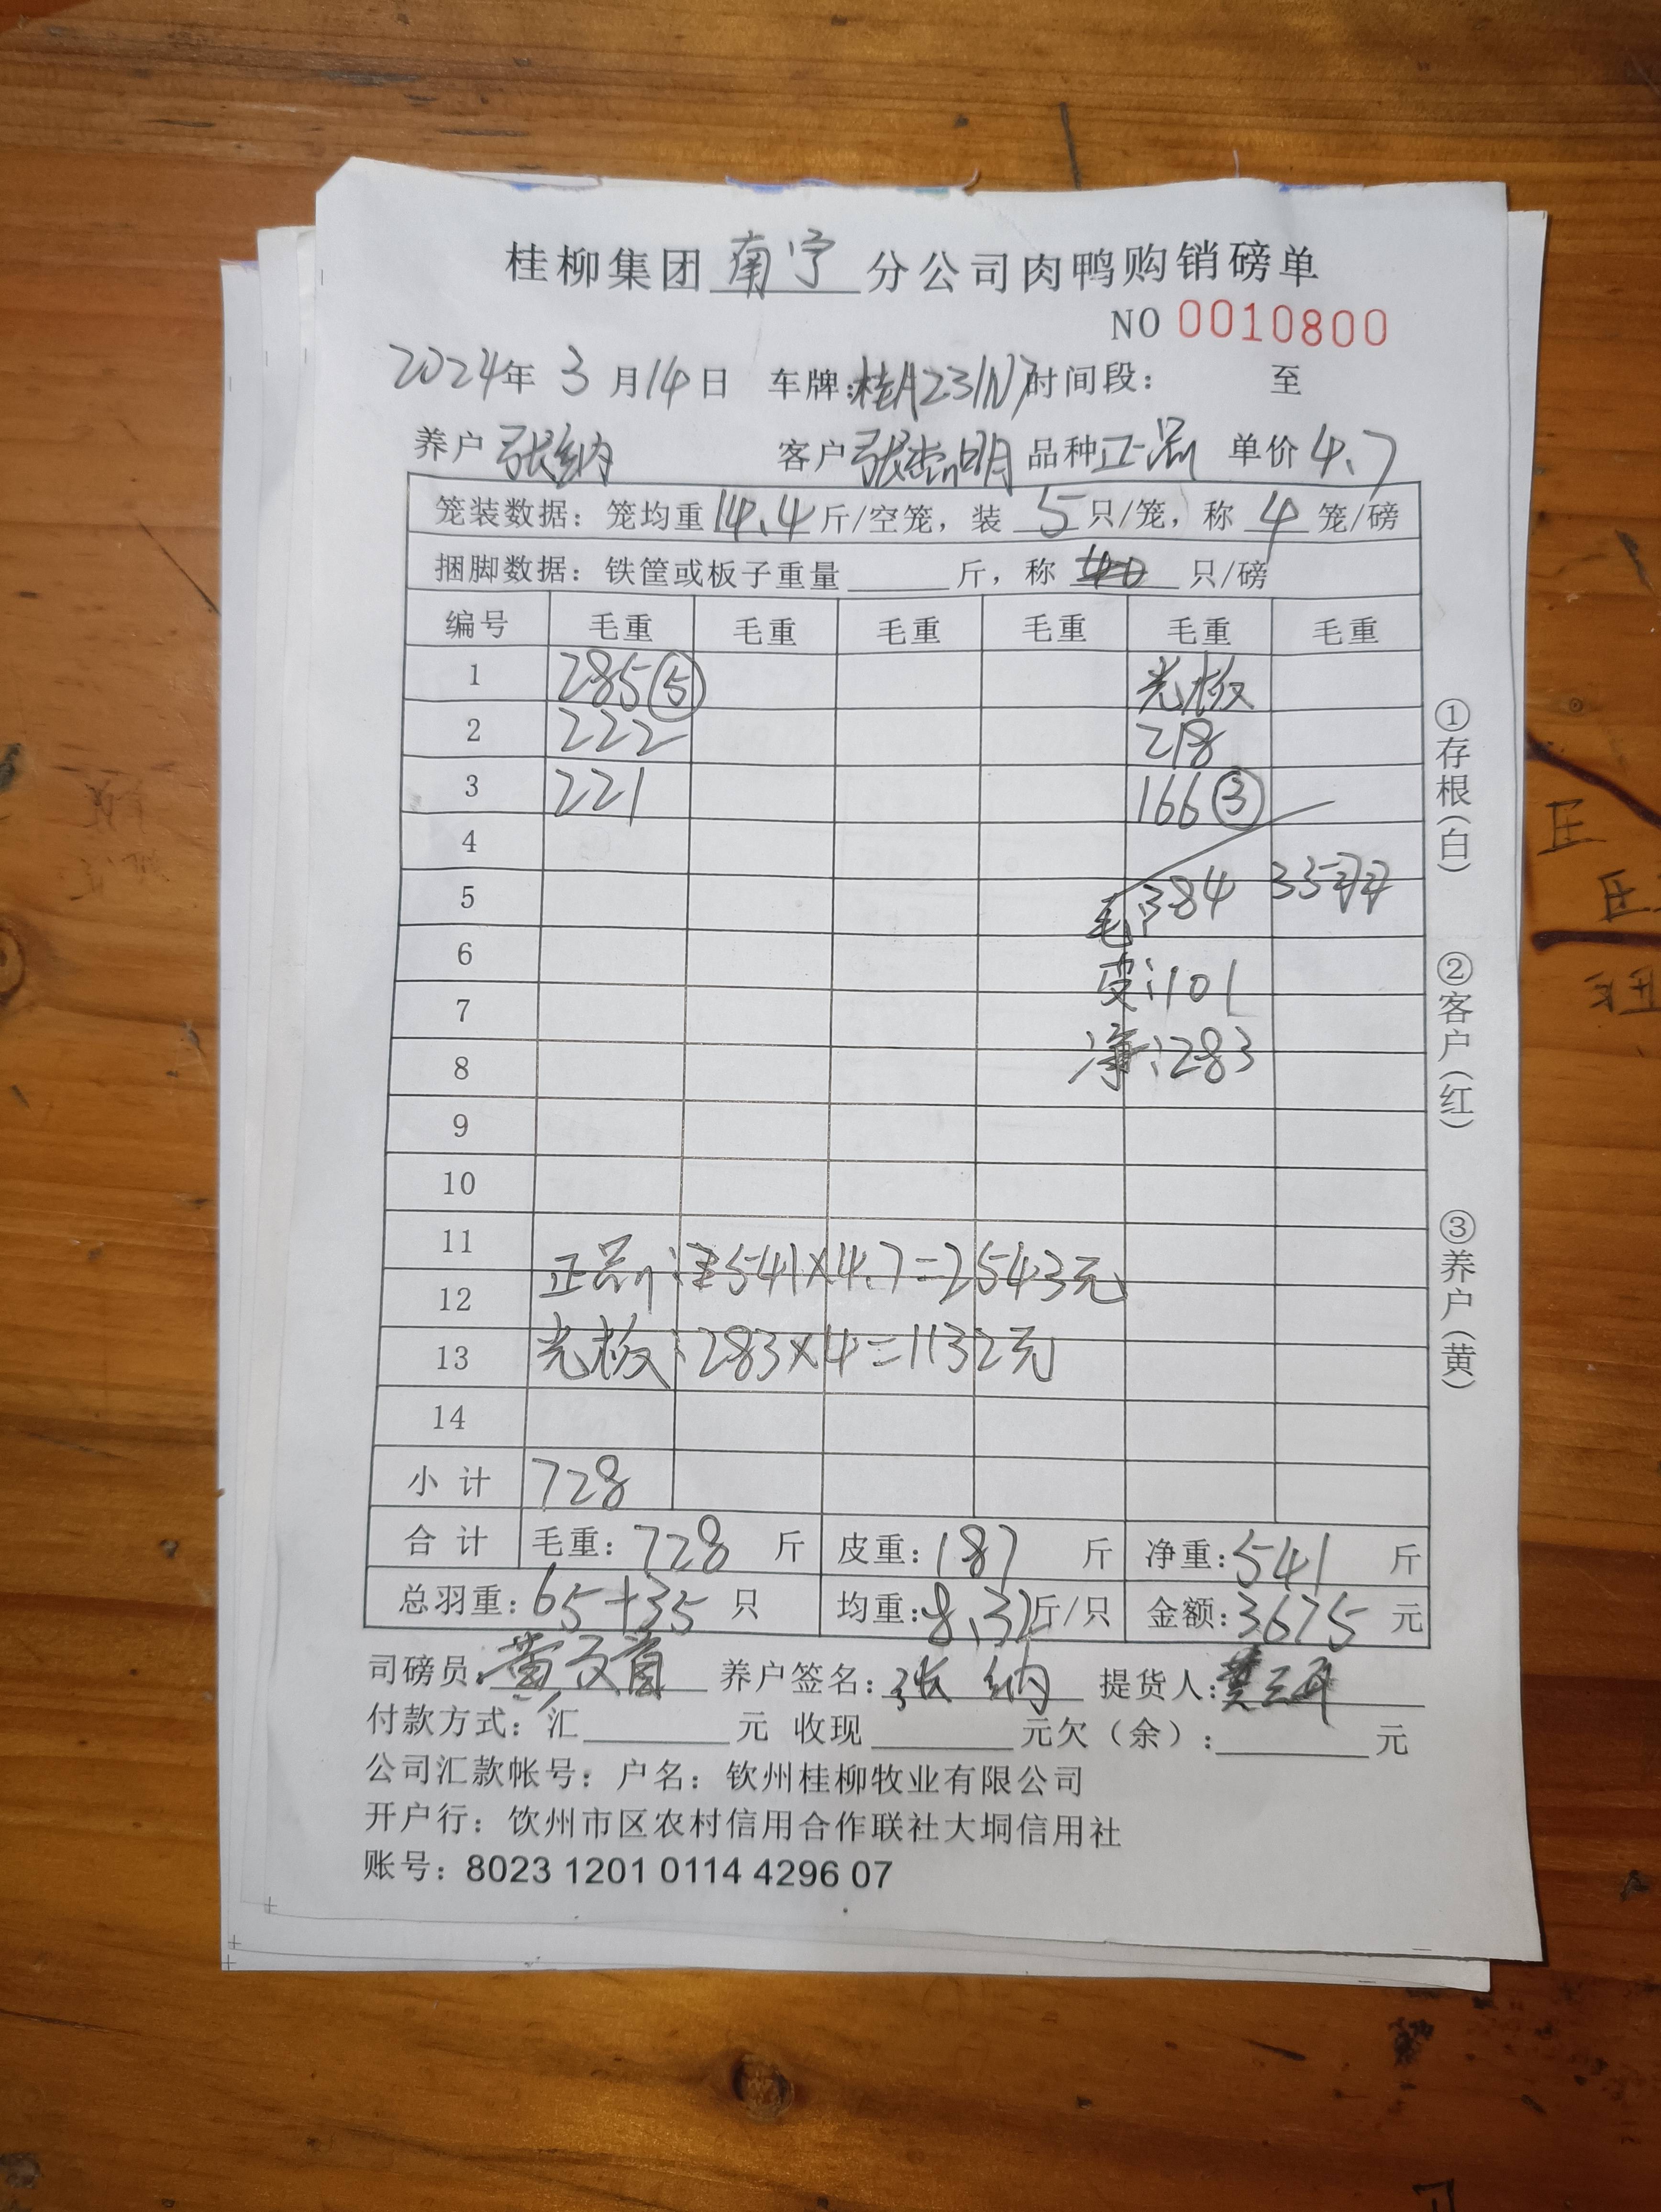 桂柳集团南宁分公司肉鸭购销磅单
NO 0010800
2024年 3月14日 车牌:桂A231N7时间段: 至
养户 张纳 客户 张明 品种 正品 单价 4.7
笼装数据:笼均重14.4斤/空笼,装 5 只/笼,称 4 笼/磅
捆脚数据:铁筐或板子重量 斤,称 只/磅
编号 毛重 毛重 毛重 毛重 毛重 毛重
1 285⑤ 光板
2 222 218
3 221 166③
4
5 毛:384 35羽
6 皮:101
7
8 净:283
9
10
11
正品:541×4.7=2543元
12
13 光板:283×4=1132元
14
小计 728
合计 毛重:728 斤 皮重:187 斤 净重:541 斤
总羽重:65+35 只 均重:8.32斤/只 金额:3675 元
司磅员:黄 养户签名:张纳 提货人:
付款方式:汇 元 收现 元欠(余): 元
公司汇款帐号:户名:钦州桂柳牧业有限公司
开户行:饮州市区农村信用合作联社大垌信用社
账号:8023 1201 0114 4296 07
①存根(白)
②客户(红)
③养户(黄)